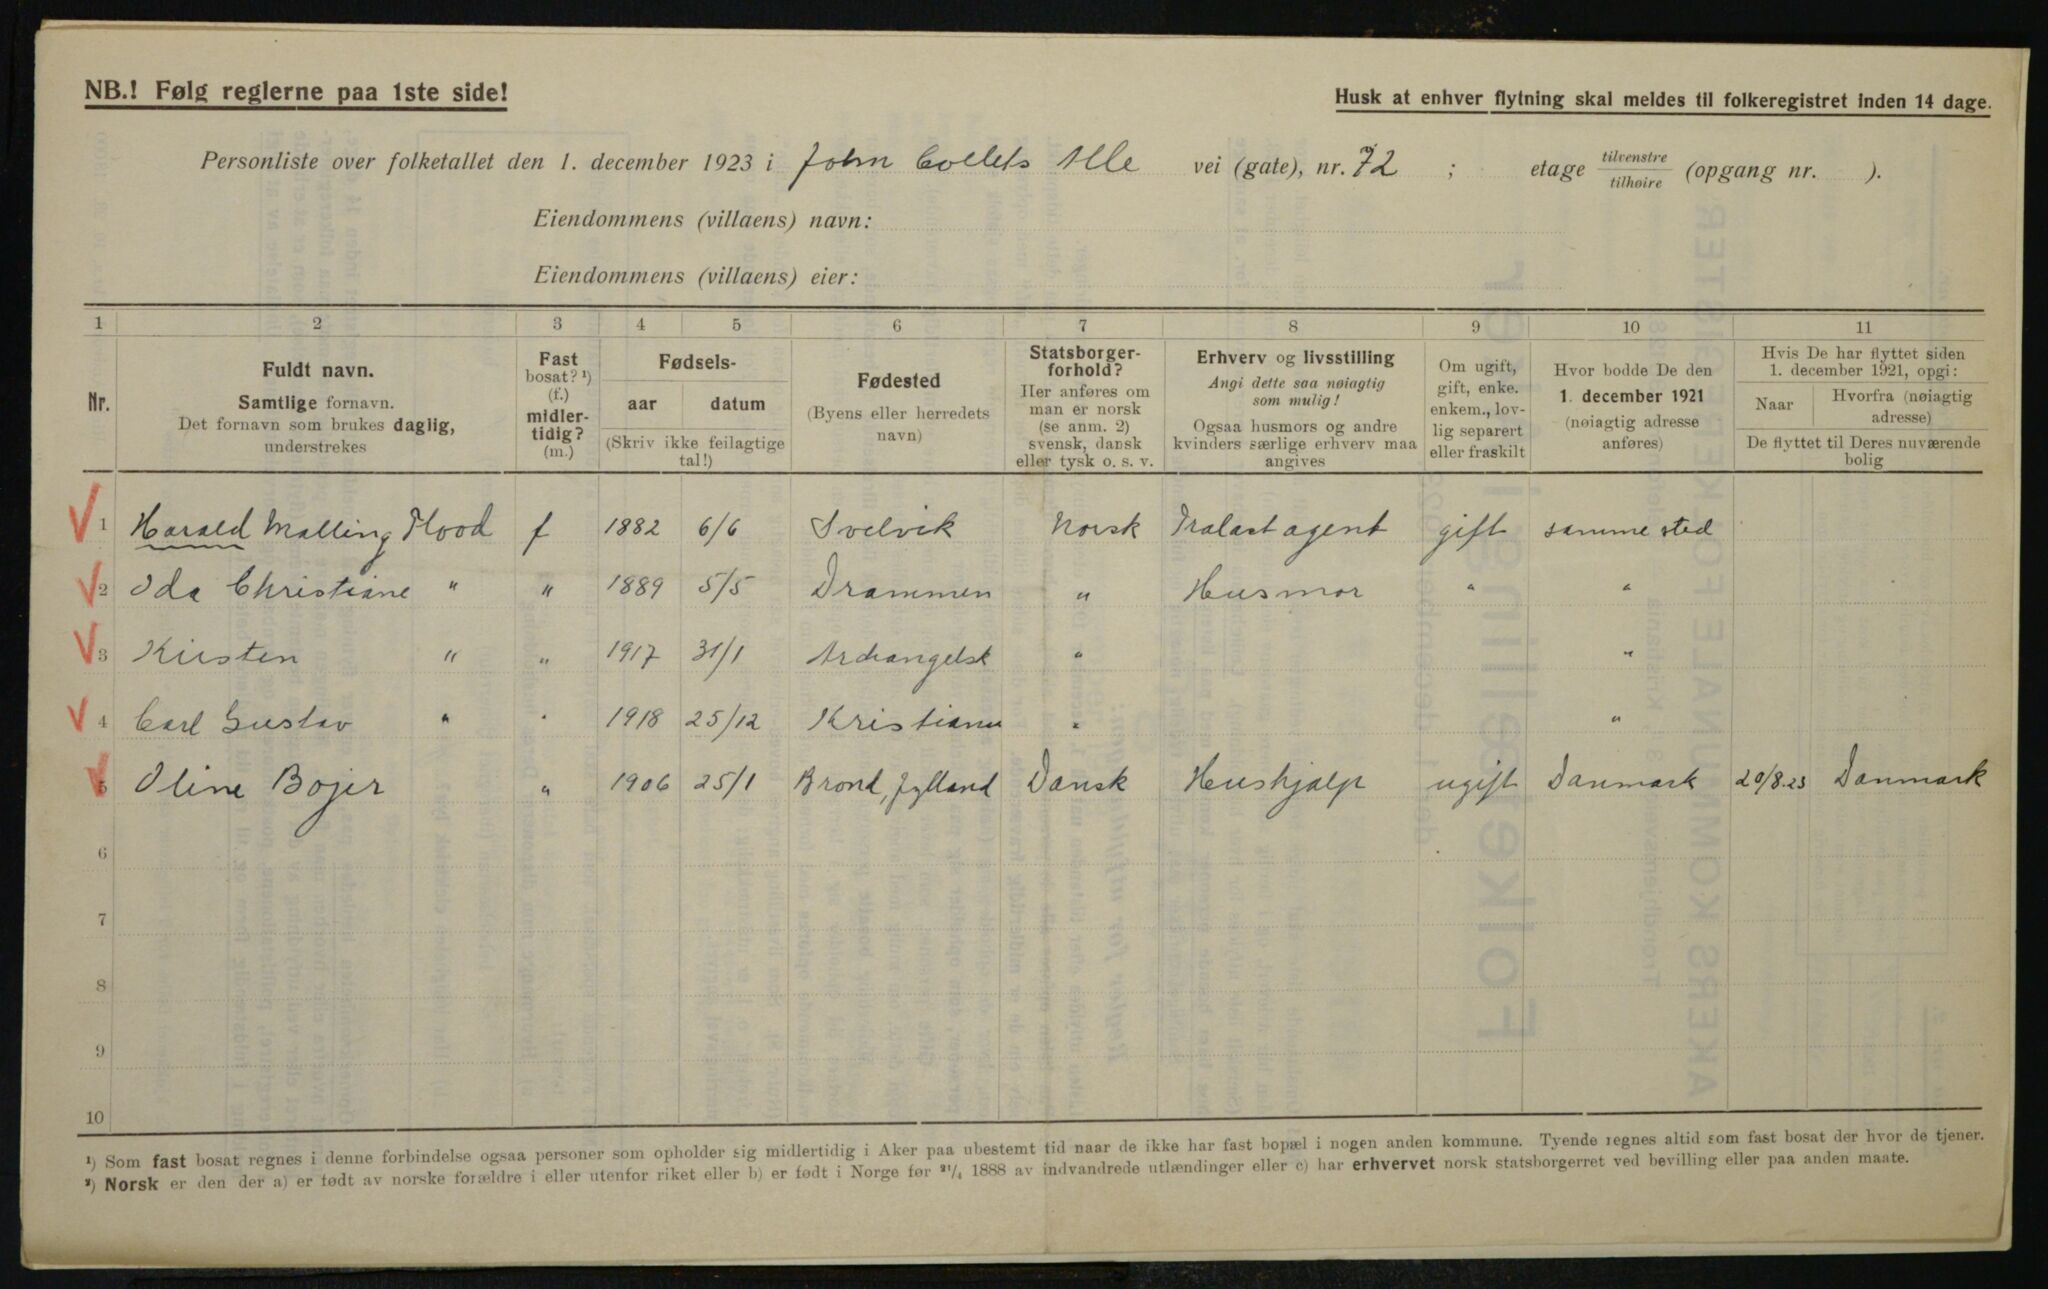 NB.! Følg reglerne paa 1ste side!
Husk at enhver flytning skal meldes til folkeregistret inden 14 dage.
Personliste over folketallet den 1. december 1923 i John Collets Alle vei (gate), nr. 72 ; etage tilvenstre/tilhøire (opgang nr. ).
Eiendommens (villaens) navn:
Eiendommens (villaens) eier:
1 2 3 4 5 6 7 8 9 10 11
Nr.
Fuldt navn.
Samtlige fornavn.
Det fornavn som brukes daglig,
understrekes
Fast
bosat? ¹)
(f.)
midler-
tidig?
(m.)
Fødsels-
aar datum
(Skriv ikke feilagtige
tal!)
Fødested
(Byens eller herredets
navn)
Statsborger-
forhold?
Her anføres om
man er norsk
(se anm. 2)
svensk, dansk
eller tysk o. s. v.
Erhverv og livsstilling
Angi dette saa nøiagtig
som mulig!
Ogsaa husmors og andre
kvinders særlige erhverv maa
angives
Om ugift,
gift, enke.
enkem., lov-
lig separert
eller fraskilt
Hvor bodde De den
1. december 1921
(nøiagtig adresse
anføres)
Hvis De har flyttet siden
1. december 1921, opgi:
Naar
Hvorfra (nøiagtig
adresse)
De flyttet til Deres nuværende
bolig
1 Harald Malling Flood f 1882 6/6 Svelvik Norsk Trælastagent gift samme sted
2 Ida Christiane " " 1889 5/5 Drammen " Husmor " "
3 Kirsten " " 1917 31/1 Archangelsk " "
4 Carl Gustav " " 1918 25/12 Kristiania " "
5 Oline Bojer " 1906 25/1 Brond, Jylland Dansk Hushjælp ugift Danmark 20/8.23 Danmark
6
7
8
9
10
¹) Som fast bosat regnes i denne forbindelse ogsaa personer som opholder sig midlertidig i Aker paa ubestemt tid naar de ikke har fast bopæl i nogen anden kommune. Tyende regnes altid som fast bosat der hvor de tjener.
²) Norsk er den der a) er født av norske forældre i eller utenfor riket eller b) er født i Norge før ²¹/₄ 1888 av indvandrede utlændinger eller c) har erhvervet norsk statsborgerret ved bevilling eller paa anden maate.